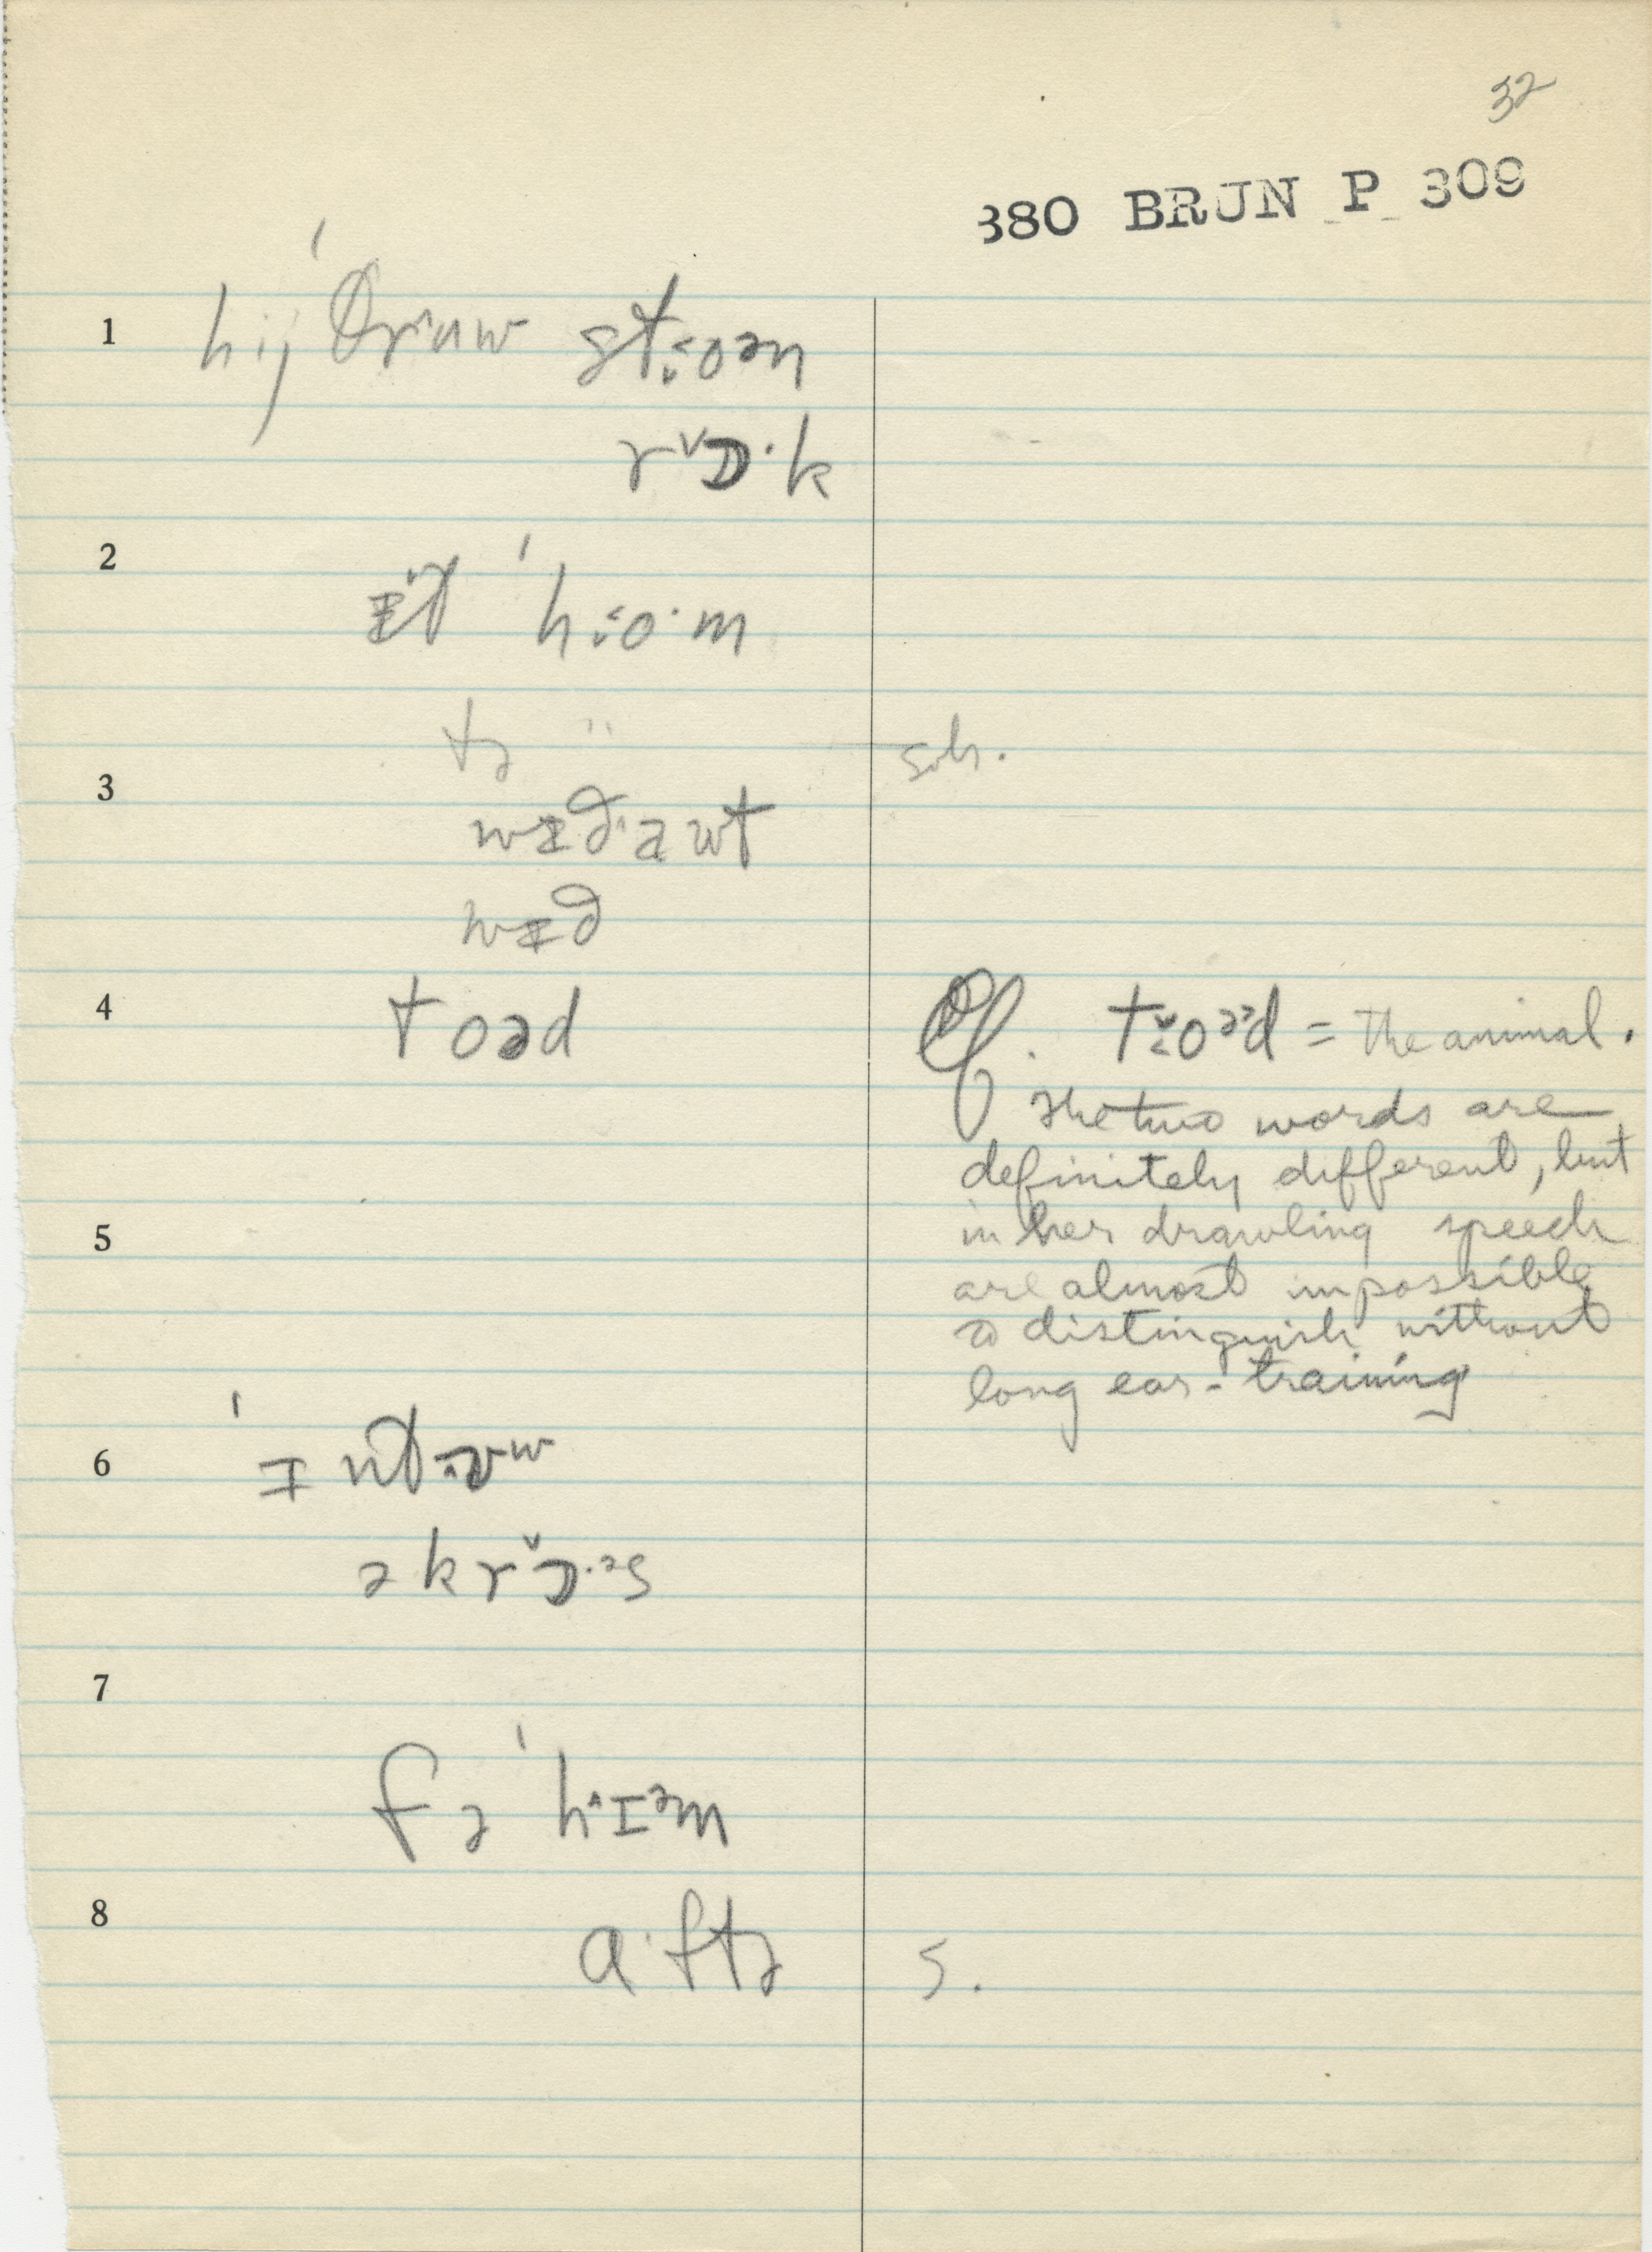 32
380 BRUN P 309
1 hij ˈθr^uw st:oən
rˇɒ·k
2 ɪt ˈh:o·m
tə "
sub.
3 wɪð·a wt
wɪð
4 toəd
Cf. t:oᵊᵊd = the animal.
The two words are
definitely different, but
in her drawling speech
are almost impossible
to distinguish without
long ear-training
5
6 ˈɪnt:ʊʷ
əkrˇɒ·ᵊs
7
fə ˈh^ɪᵊm
8 a·ftə
s.